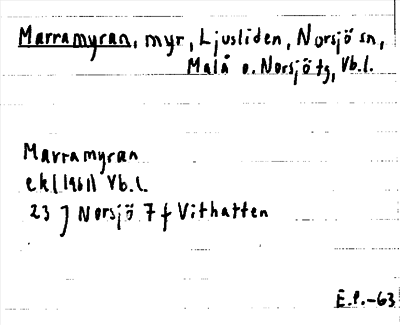 Marramyran, myr, Ljusliden, Norsjö sn,
Malå o. Norsjö tg, Vb.l.
Marramyran
ek (1961) Vb.l.
23 J Norsjö 7 f Vithatten
E.P.-63